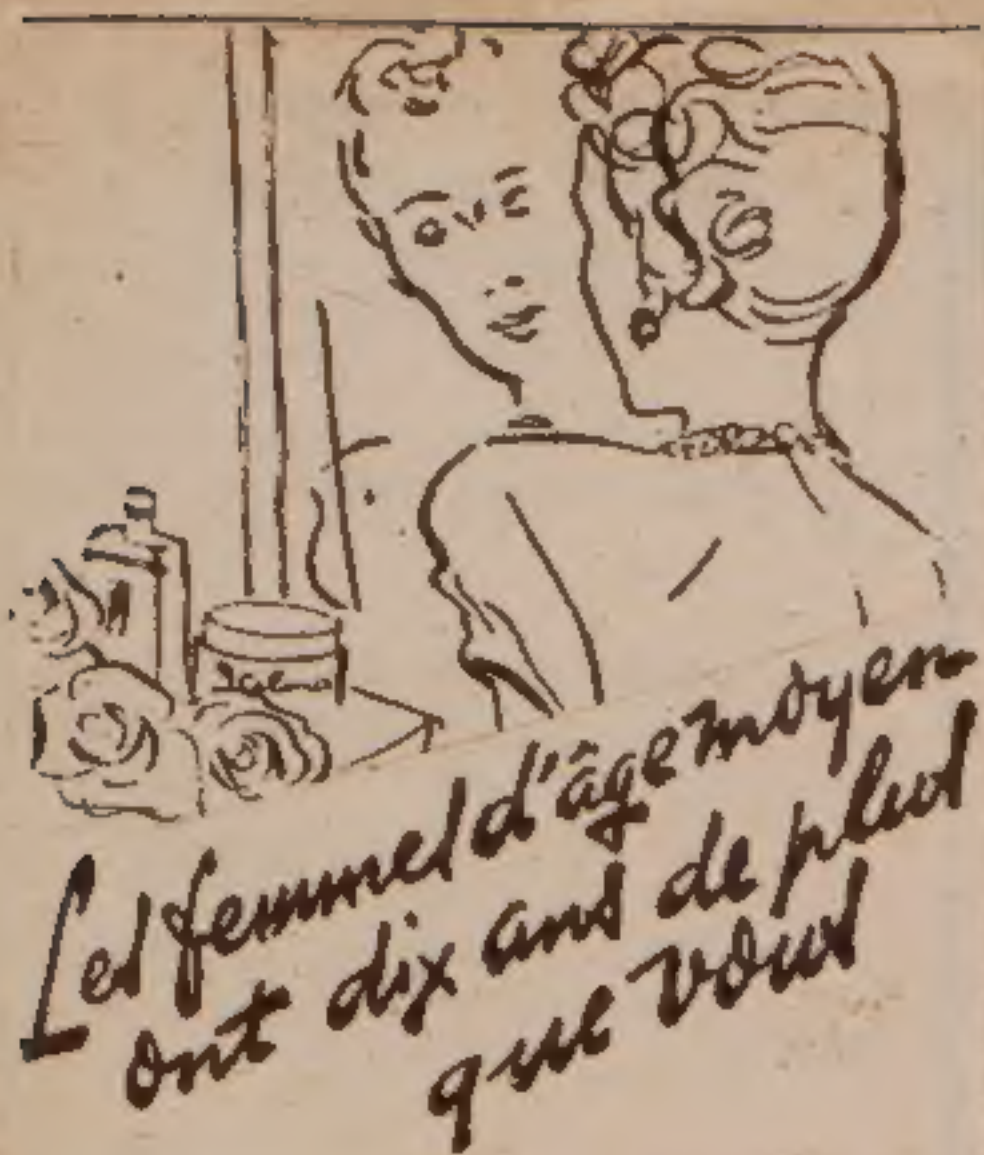 Les femmes d'âge moyen
ont dix ans de plus
que vous